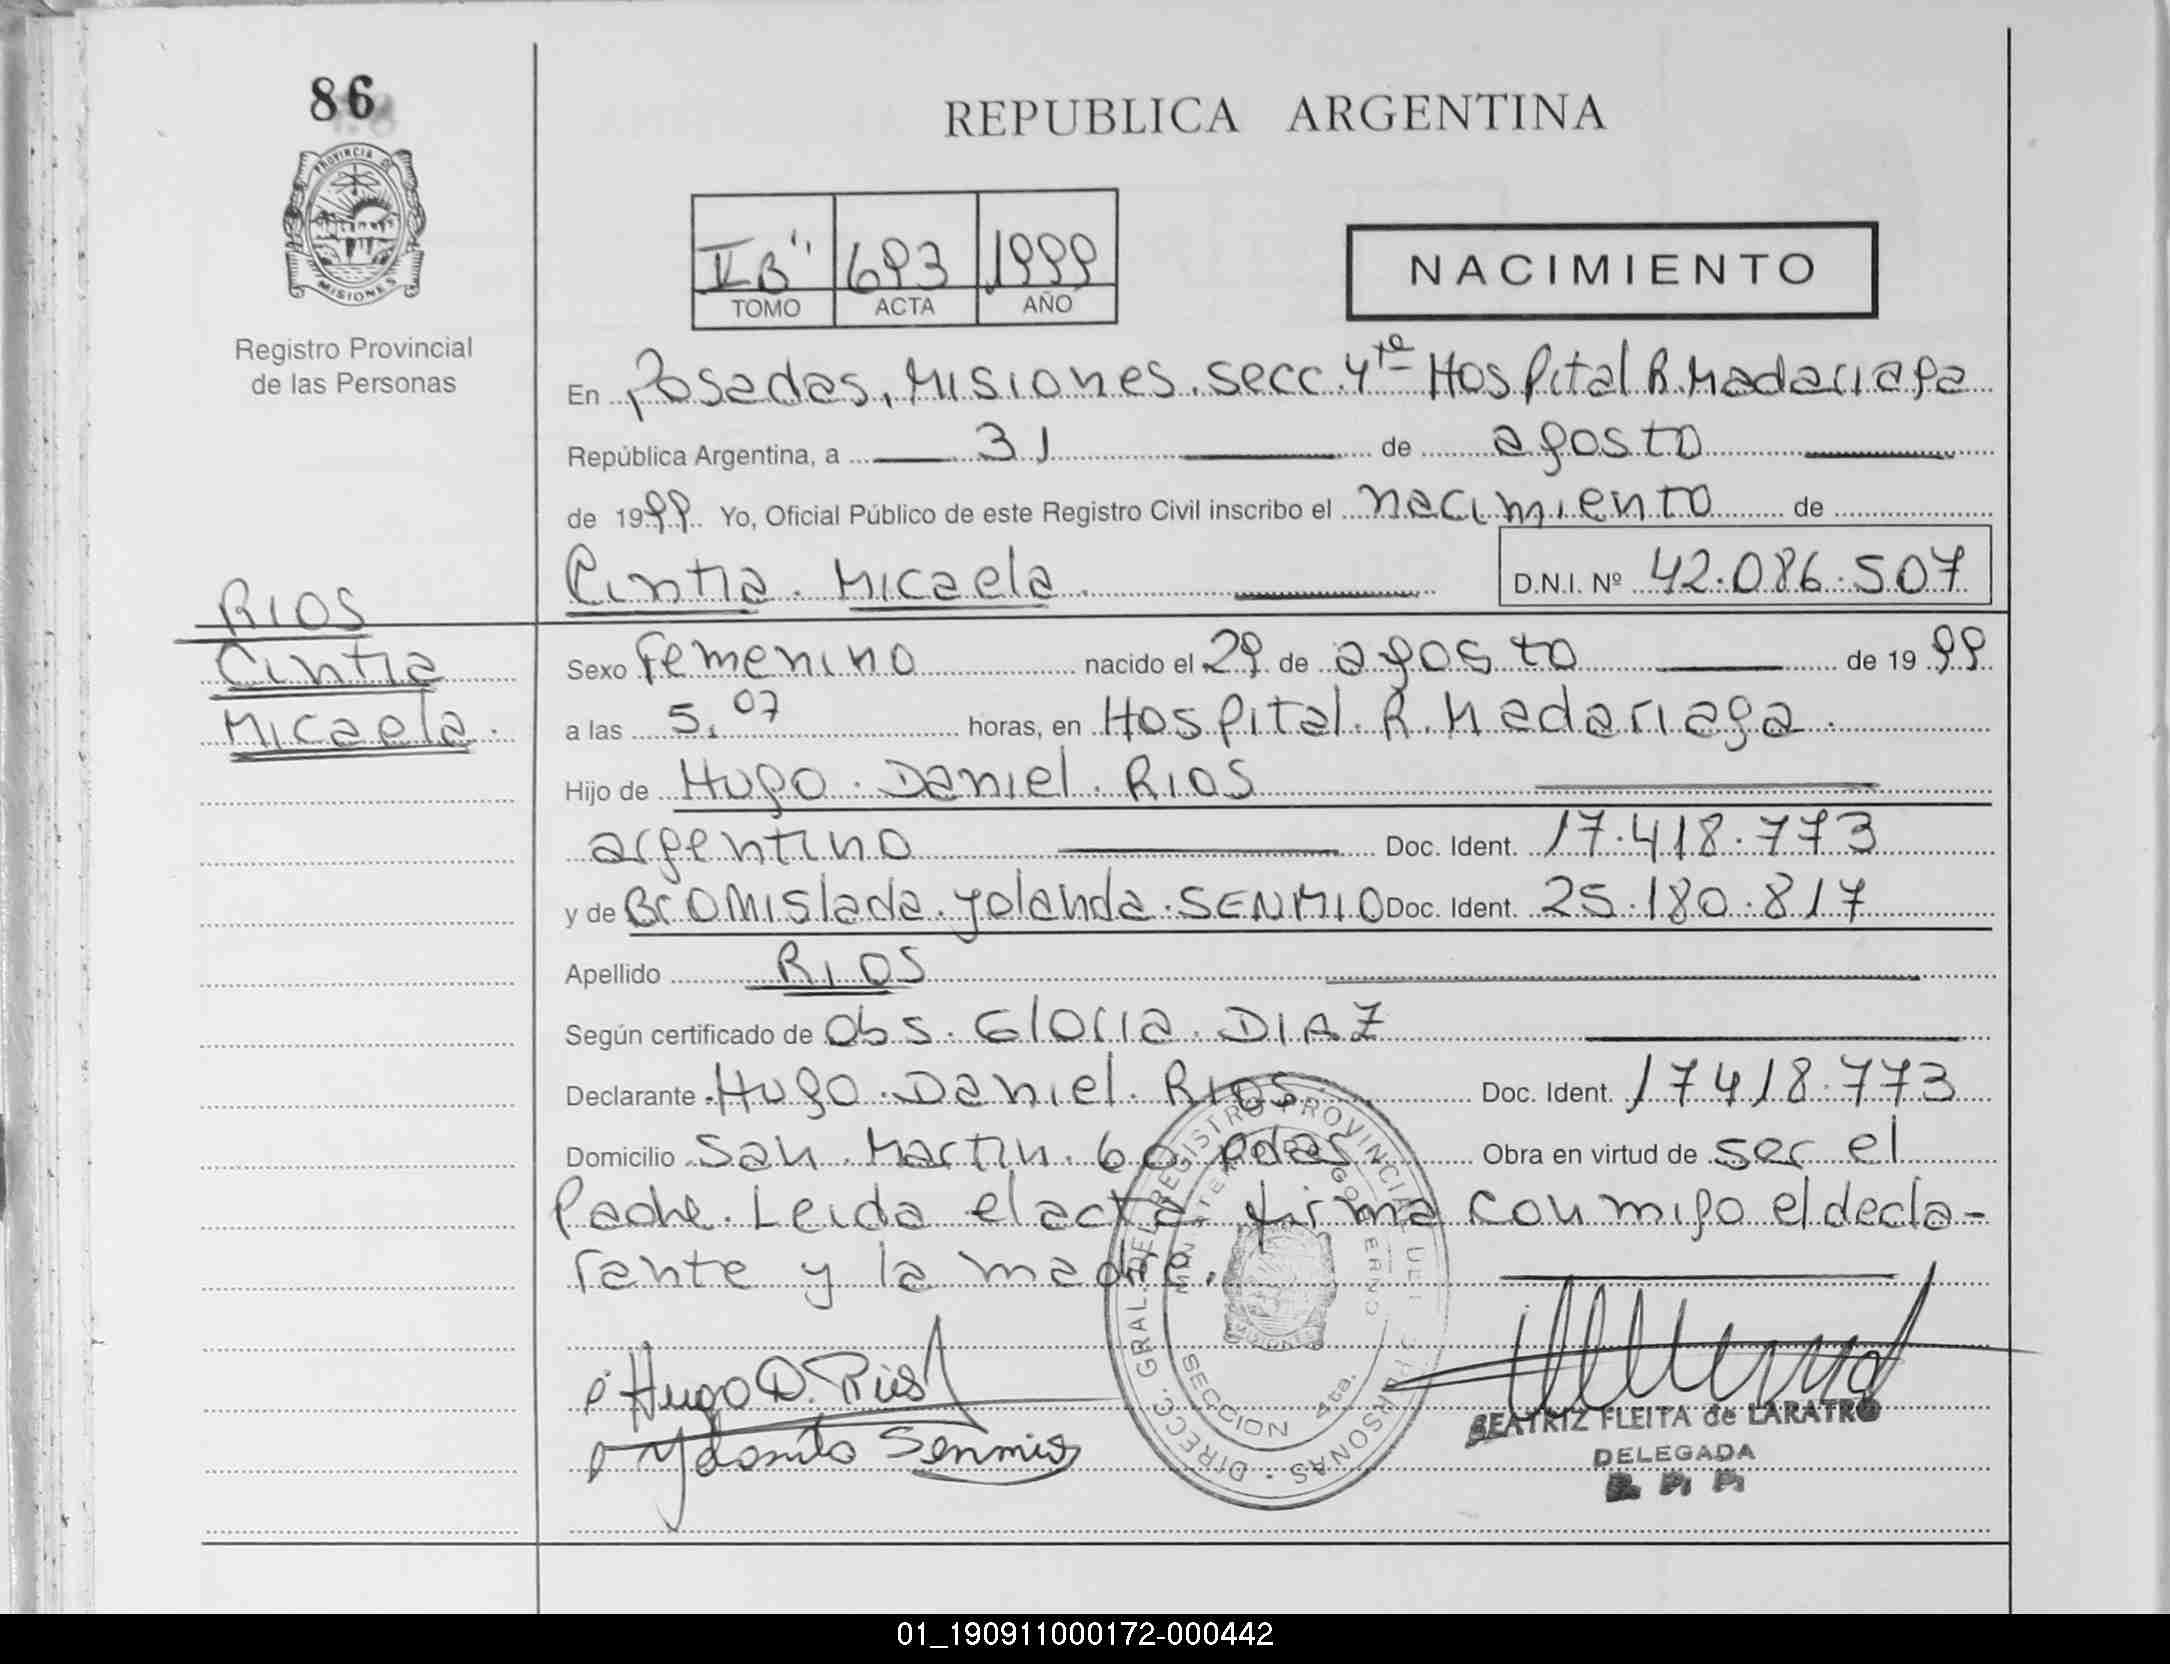 86
REPUBLICA ARGENTINA
PROVINCIA DE MISIONES
Registro Provincial
de las Personas
II B" 693 1999
TOMO ACTA AÑO
NACIMIENTO
En Posadas, Misiones. secc. 4ta Hospital R. Madariaga
República Argentina, a 31 de agosto
de 1999 Yo, Oficial Público de este Registro Civil inscribo el nacimiento de
Cintia. Micaela. D.N.I. Nº 42.086.507
RIOS
Cintia
Micaela.
Sexo Femenino nacido el 29 de agosto de 1999
a las 5,07 horas, en Hospital. R. Madariaga.
Hijo de Hugo. Daniel. RIOS
argentino Doc. Ident. 17.418.773
y de Bromislada. Yolanda. SENMIO Doc. Ident. 25.180.817
Apellido RIOS
Según certificado de Obs. Gloria. DIAZ
Declarante Hugo. Daniel. RIOS. Doc. Ident. 17418.773
Domicilio San. Martin. 60 pdas. Obra en virtud de ser el
Padre. Leida el acta firma conmigo el decla-
rante y la madre.
Hugo D. Rios
Senmio
DIRECC. GRAL. DEL REGISTRO PROVINCIAL DE LAS PERSONAS
MINISTERIO DE GOBIERNO
MISIONES
SECCION 4ta.
BEATRIZ FLEITA de LARATRO
DELEGADA
01_190911000172-000442